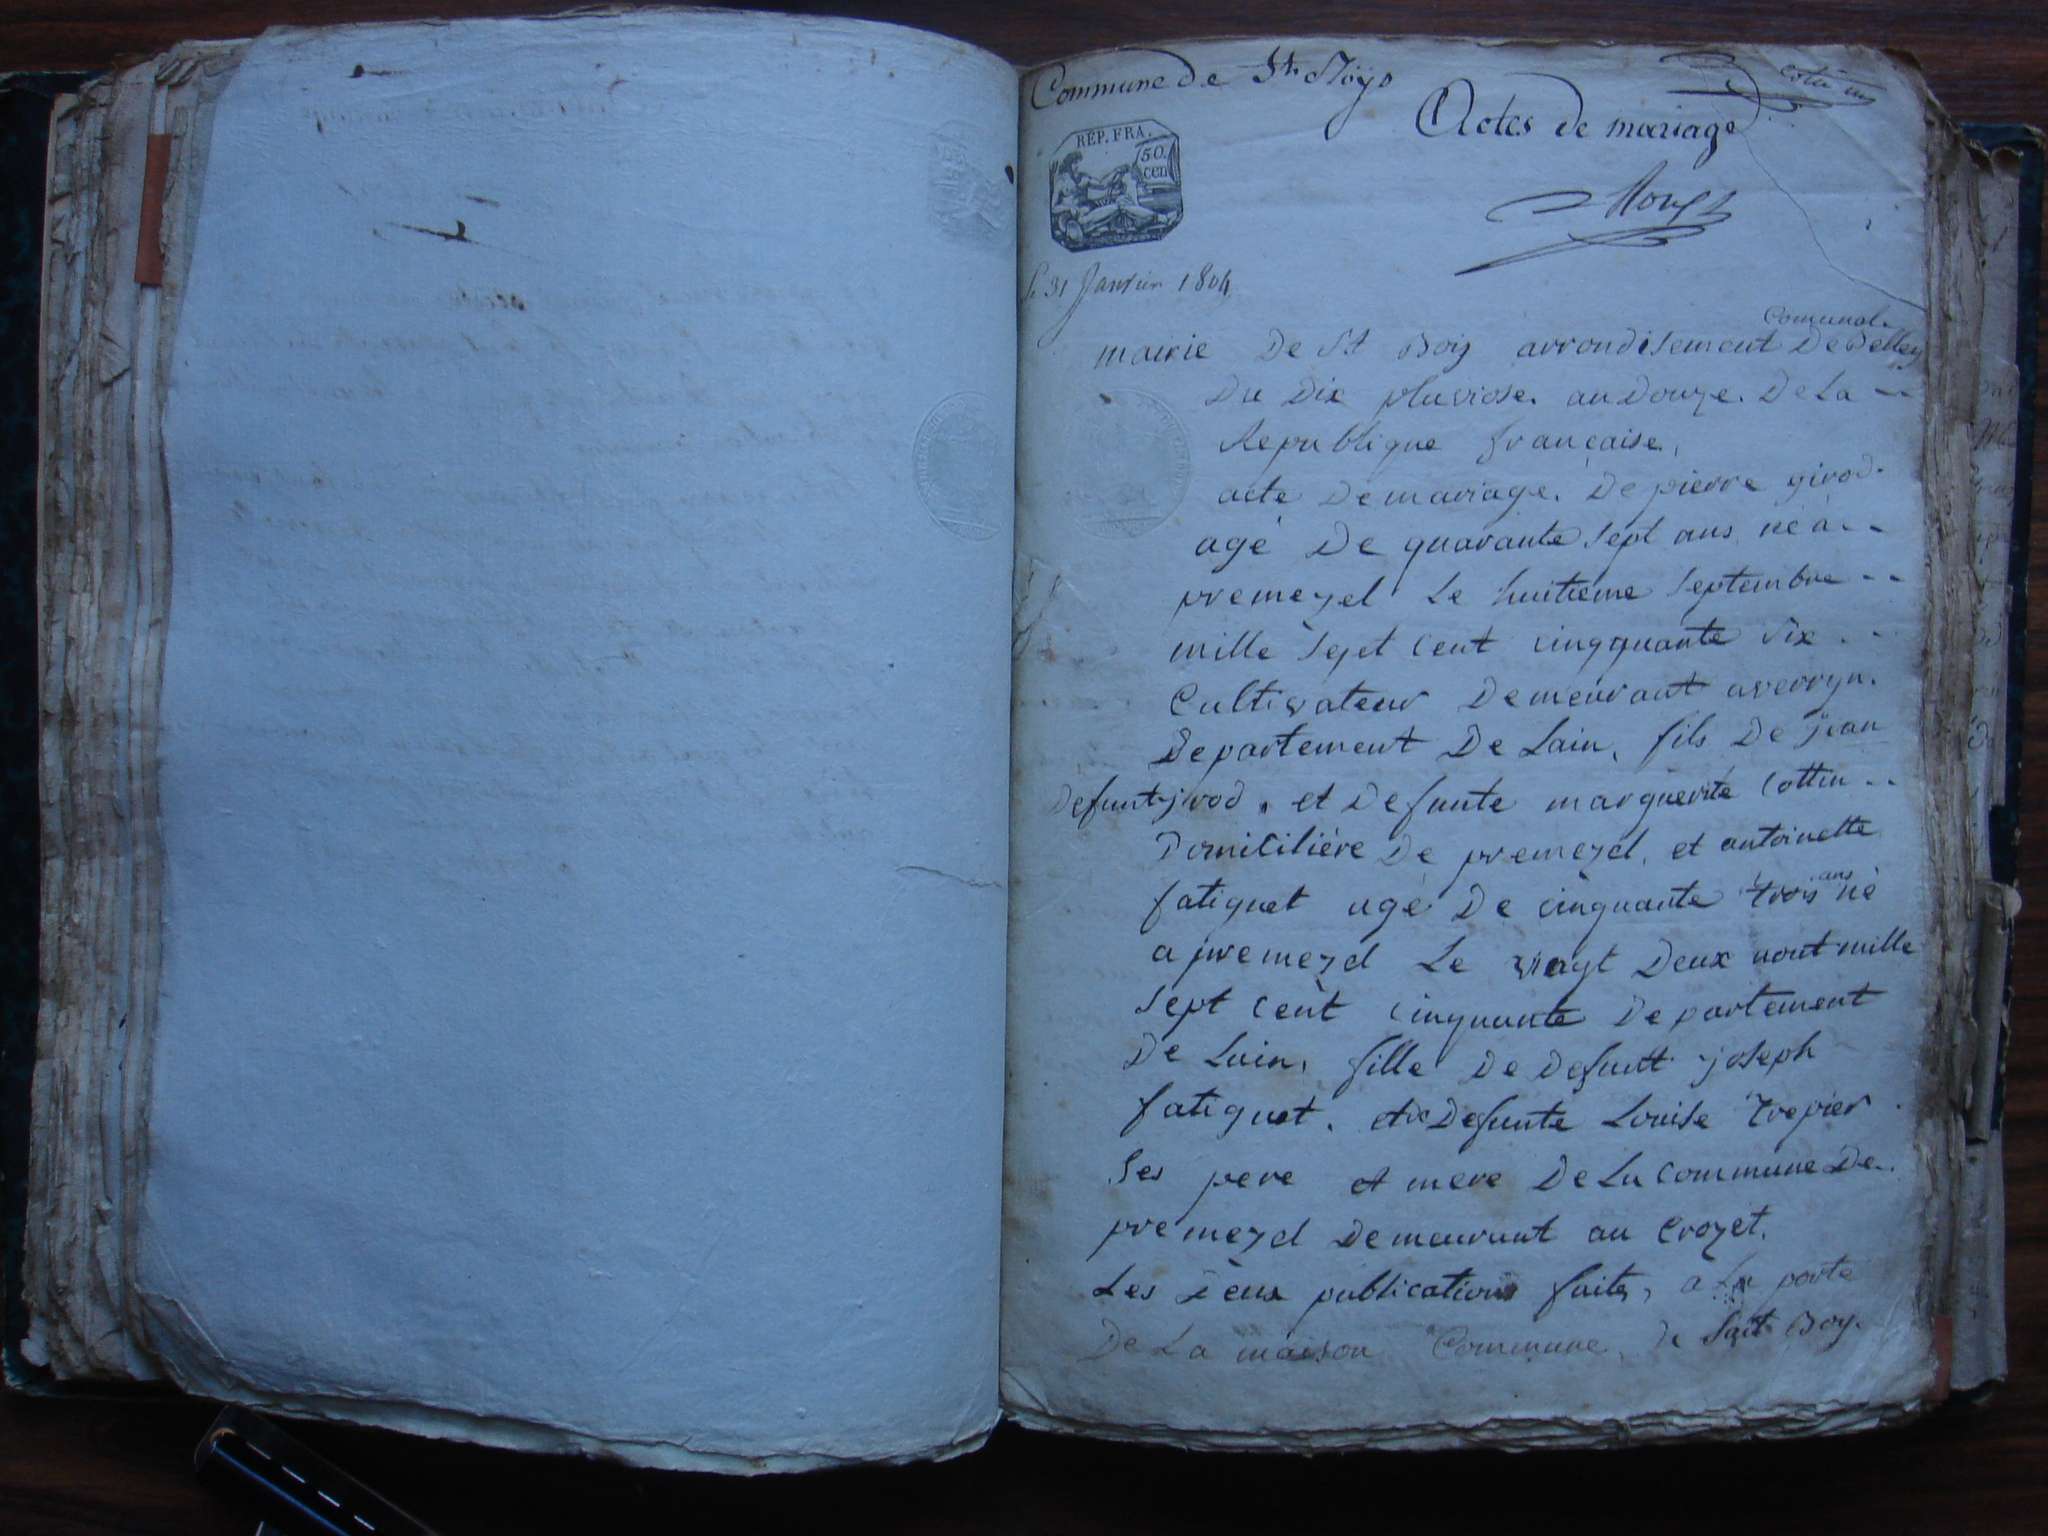 Commune de St Boys
Cotté un
Actes de mariage
RÉP. FRA.
50.
cen
Le 31 Janvier 1804
Comunal
mairie De St Bois arrondisement De Belley
Du Dix pluviose. an Douze. De La --
Republique française,
acte De mariage. De pierre girod.
agé De quarante sept ans né a --
premezel Le huitieme septembre --
mille sept cent cinqquante six --
Cultivateur Demeurant a
Departement De Lain, fils De jean
Defunt jrod. et Defunte marguerite Cottin --
Domiciliére De premezel, et antoinette
ans
fatiguet agé De cinquante trois né
a premezel Le vingt Deux aout mille
sept cent cinquante Departement
De Lain, fille De Defuntt joseph
fatiguet. et De Defunte Louise trepier
ses pere et mere De La Commune De
premezel Demeurant au Crozet.
Les Deux publications faites, a La porte
De La maison Commune, De Sait Boy.